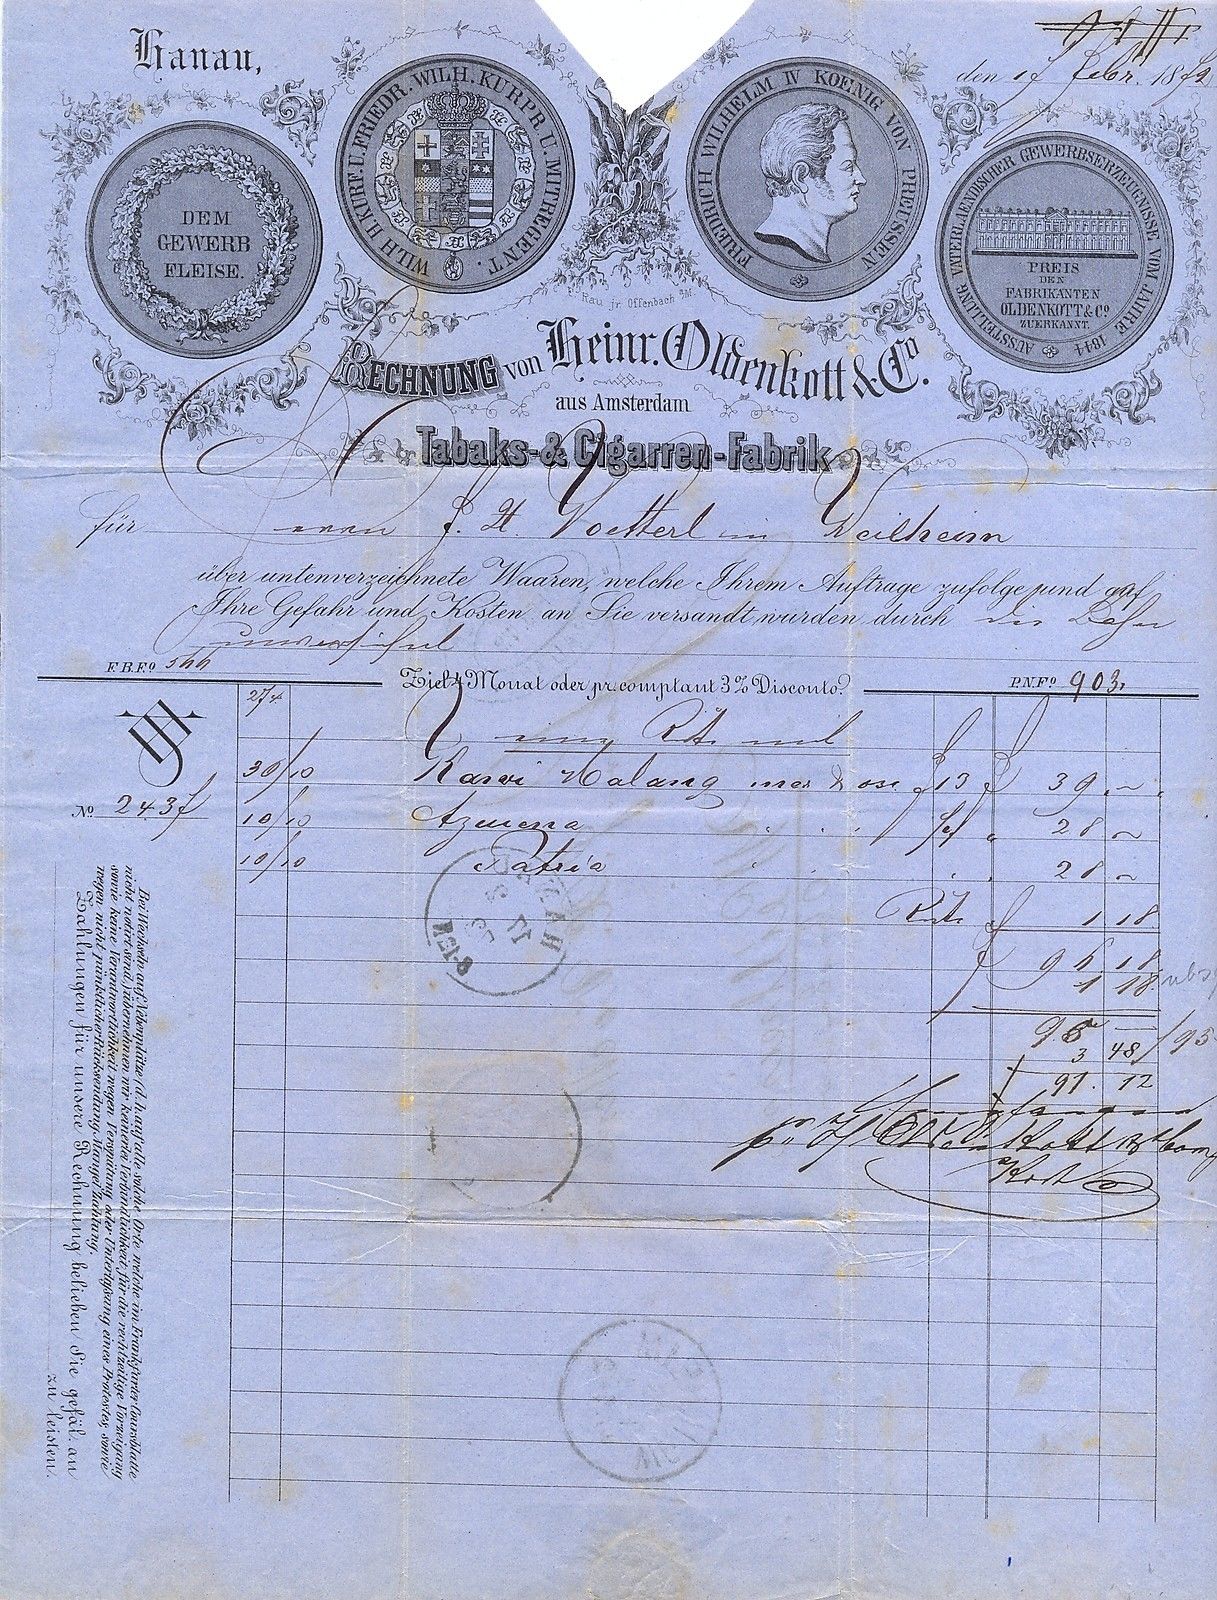 Hanau,
den 17 Febr. 1872
DEM
GEWERB
FLEISE.
WILH. II. KURF. U. FRIEDR. WILH. KURPR. U. MITREGENT.
FRIEDRICH WILHELM IV KOENIG VON PREUSSEN
AUSSTELLUNG VATERLAENDISCHER GEWERBSERZEUGNISSE VOM JAHRE 1844
PREIS
DEN
FABRIKANTEN
OLDENKOTT & Cº
ZUERKANNT.
F. Rau jr Offenbach a/M.
RECHNUNG von Heinr. Oldenkott & Cº.
aus Amsterdam
Tabaks- & Cigarren-Fabrik
für Herrn J. H. Voetterl in Weilheim
über untenverzeichnete Waaren, welche Ihrem Auftrage zufolge und auf
Ihre Gefahr und Kosten an Sie versandt wurden durch die Bahn
F.B.Fº 566
Ziel 4 Monat oder pr. comptant 3% Disconto.
P.N.Fº 903.
274
30/10 Malang 13 39 . ~
Nº 2437
10/10 Azucena 28 ~
10/10 Patria 28 ~
1 18
96 18
1 18
95 —
3 48
91. 12
Bei Wechseln auf Nebenplätze (d.h. auf alle solche Orte welche im Frankfurter Coursblatte
nicht notirt sind,) übernehmen wir keinerlei Verbindlichkeit für die rechtzeitige Vorzeigung
sowie keine Verantwortlichkeit wegen Verspätung oder Unterlaßung eines Protestes, sowie
wegen nicht pünktlicher Rücksendung Mangel Zahlung.
Zahlungen für unsere Rechnung belieben Sie gefäl. an
zu leisten.